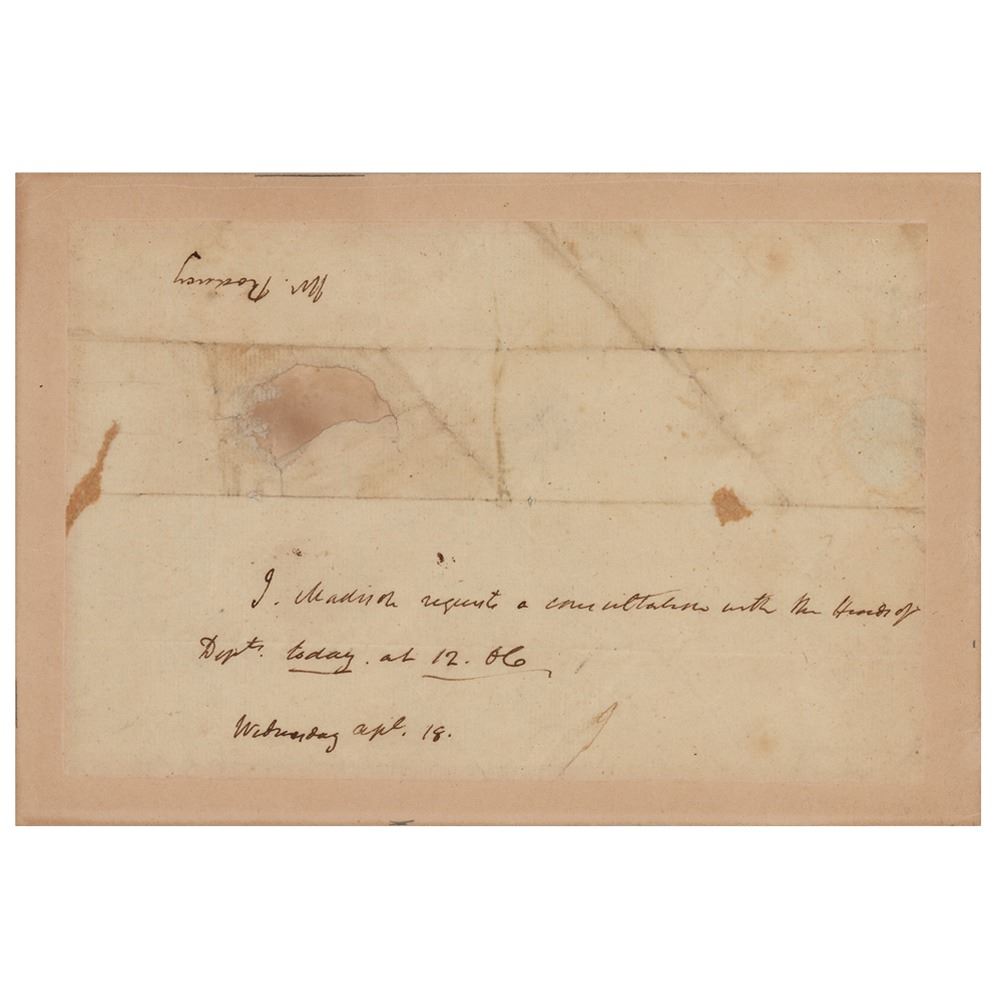 Mr. Rodney
J. Madison requests a consultation with the Heads of
Depts. today. at 12. OC
Wednesday apl. 18.